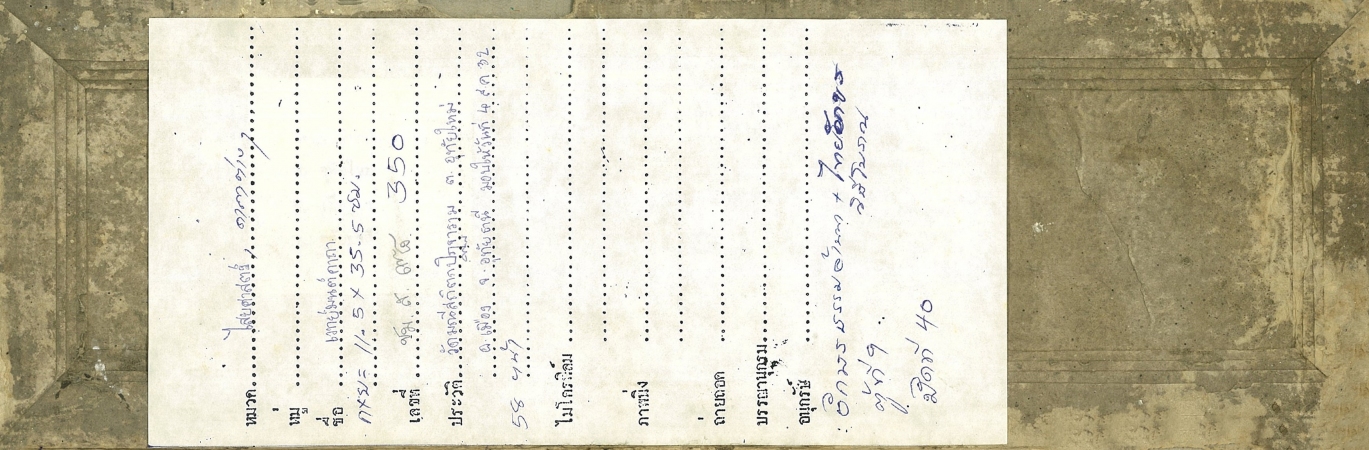 หมวด ไสยศาสตร์, คาถาต่างๆ
หมู่
ชื่อ เวทย์มนต์คาถา
ขนาด 11.5 X 35.5 ซม.
เลขที่ 350
ประวัติ วัดมณีสถิตกปิฏฐาราม ต. อุทัยใหม่
อ.เมือง จ.อุทัยธานี มอบให้วันที่
58 หน้า
ไมโครฟิล์ม
ภาพนิ่ง
ถ่ายถอด
บรรณานุกรม
อนุรักษ์
อักษรธรรมล้านนา + ไทย
ตู้ที่ 9
มัดที่ 40